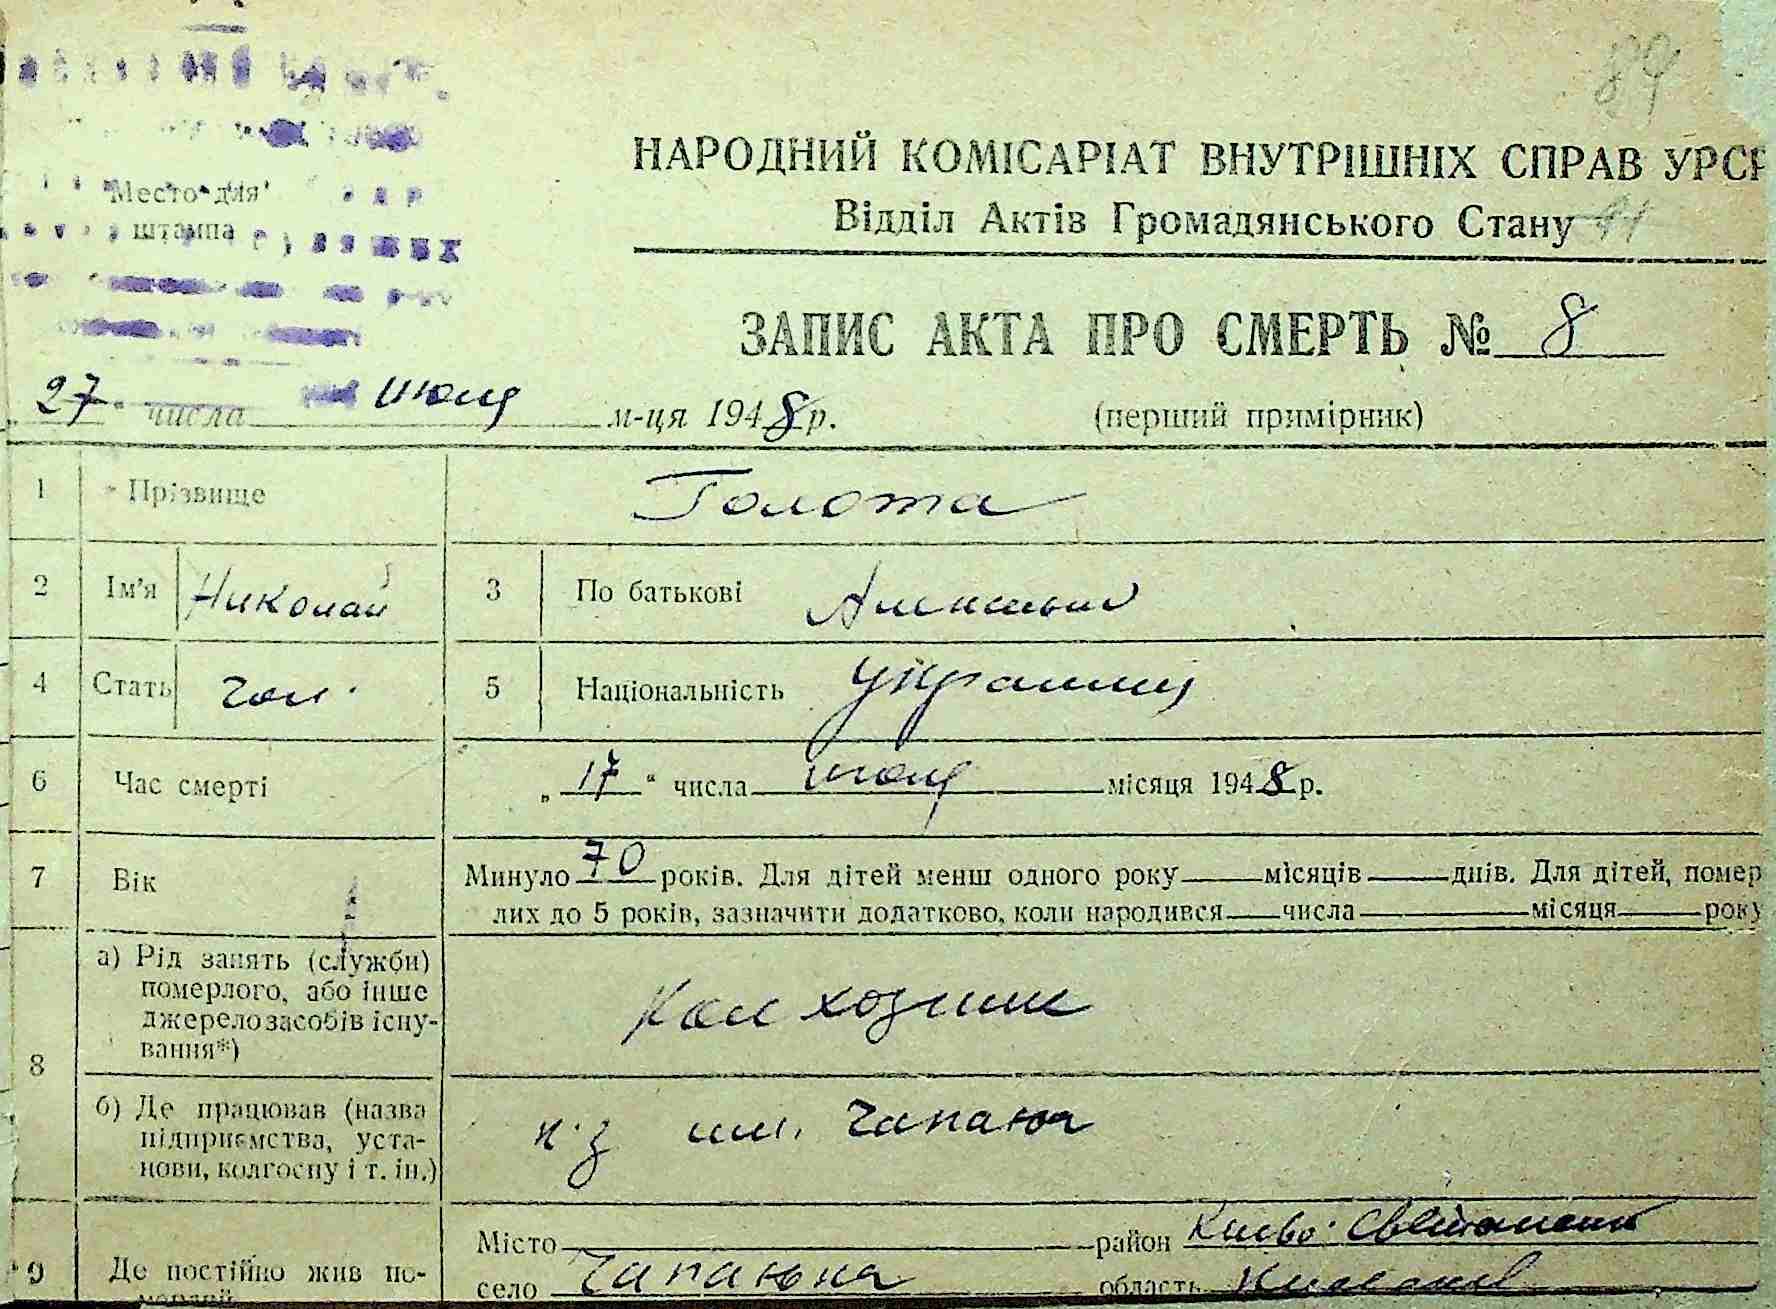 89
НАРОДНИЙ КОМІСАРІАТ ВНУТРІШНІХ СПРАВ УРСР
Место для
штампа
Відділ Актів Громадянського Стану
ЗАПИС АКТА ПРО СМЕРТЬ № 8
„27“ числа июля м-ця 1948 р. (перший примірник)
1 Прізвище Голота
2 Ім'я Николай 3 По батькові Алексеевич
4 Стать чол. 5 Національність украинец
6 Час смерті „17“ числа июля місяця 1948 р.
7 Вік Минуло 70 років. Для дітей менш одного року місяців днів. Для дітей, помер
лих до 5 років, зазначити додатково, коли народився числа місяця року
8 а) Рід занять (служби)
померлого, або інше
джерело засобів існу-
вання*)
Колхозник
б) Де працював (назва
підприємства, уста-
нови, колгоспу і т. ін.)
к-з им. Чапаева
9 Де постійно жив по-
Місто район Киево-Святошинский
село Чапаевка область Киевская